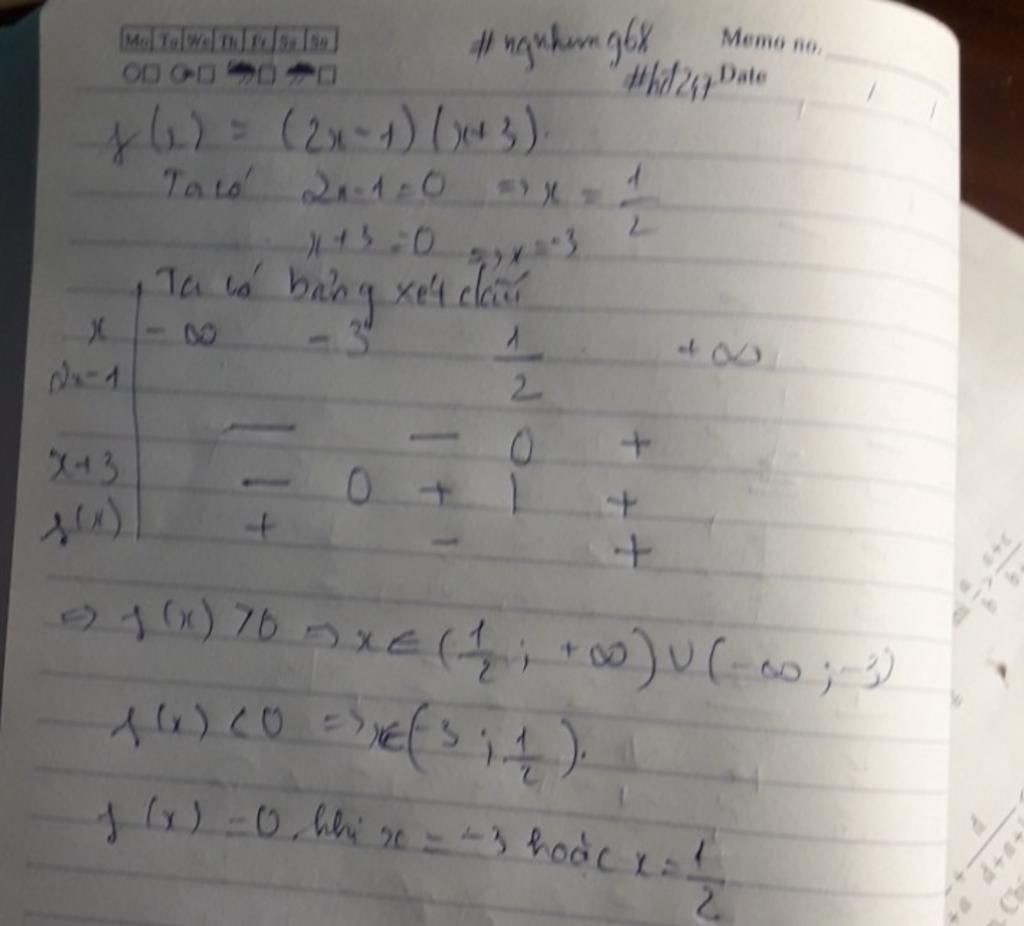 Mo Tu We Th Fr Sa Su
#ngnhung68 Memo no.
#hd247 Date
f(x) = (2x-1)(x+3).
Ta có 2x-1=0 => x = 1/2
x+3=0 => x=-3
Ta có bảng xét dấu
x -∞ -3 1/2 +∞
2x-1 — — 0 +
x+3 — 0 + | +
f(x) + - +
=> f(x) >0 => x ∈ (1/2; +∞) ∪ (-∞;-3)
f(x) <0 => x∈(-3;1/2).
f(x) =0 khi x = -3 hoặc x = 1/2